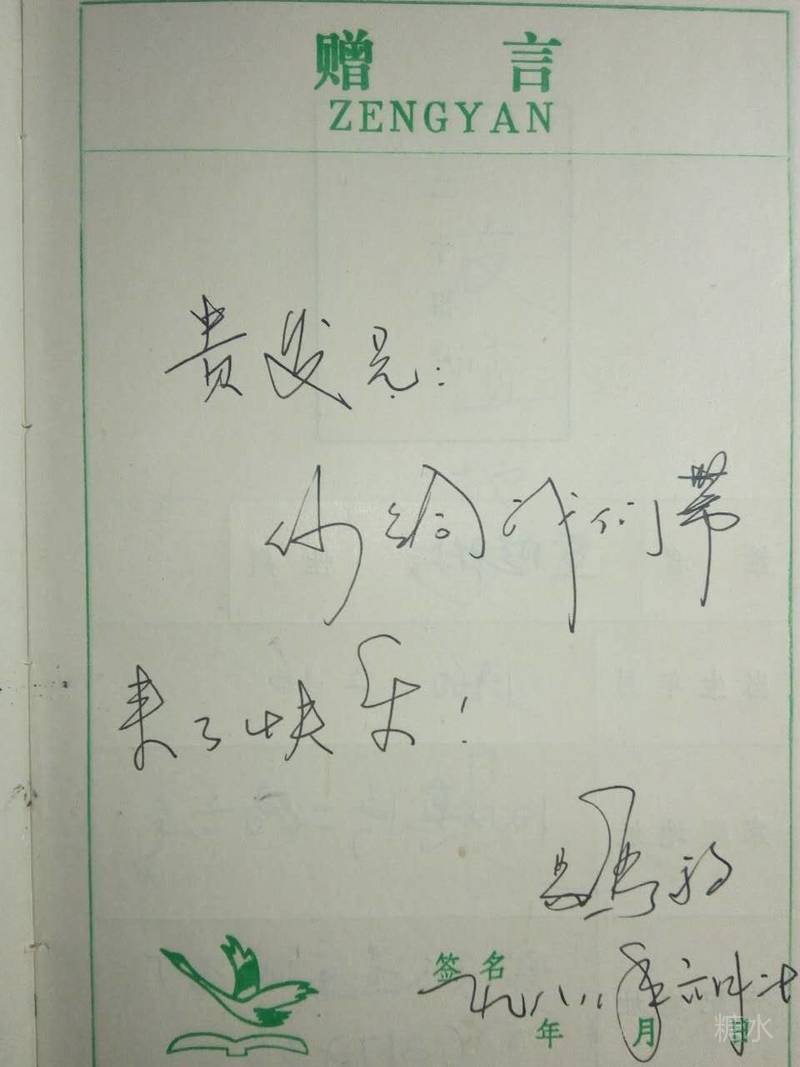 赠 言
ZENGYAN
贵发兄:
你给我们带
来了快乐!
签名
一九八八年六月
年 月 日
糖水